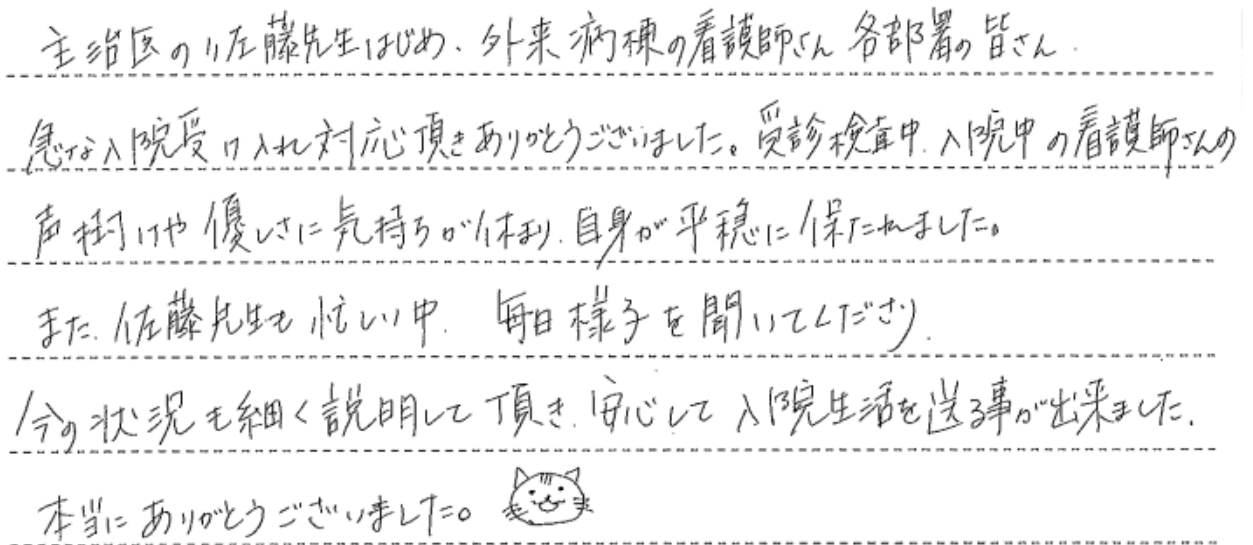 主治医の佐藤先生はじめ、外来病棟の看護師さん 各部署の皆さん.
急な入院受け入れ対応頂きありがとうございました。受診検査中、入院中の看護師さんの
声掛けや優しさに気持ちが休まり、自身が平穏に保たれました。
また、佐藤先生も忙しい中、毎日様子を聞いてくださり、
今の状況も細く説明して頂き、安心して入院生活を送る事が出来ました.
本当にありがとうございました。